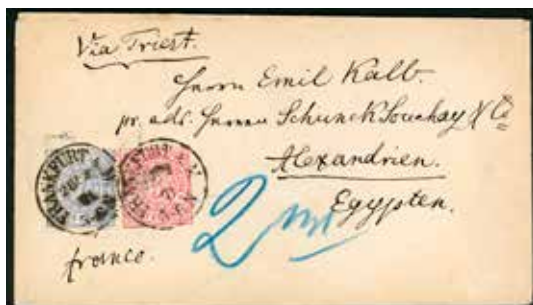 Via Triest.
Herrn Emil Kalb.
pr. adr. Herren Schunck Souchay & Co
Alexandrien.
Egypten.
FRANKFURT A. M.
FRANKFURT A. M.
2
franco.